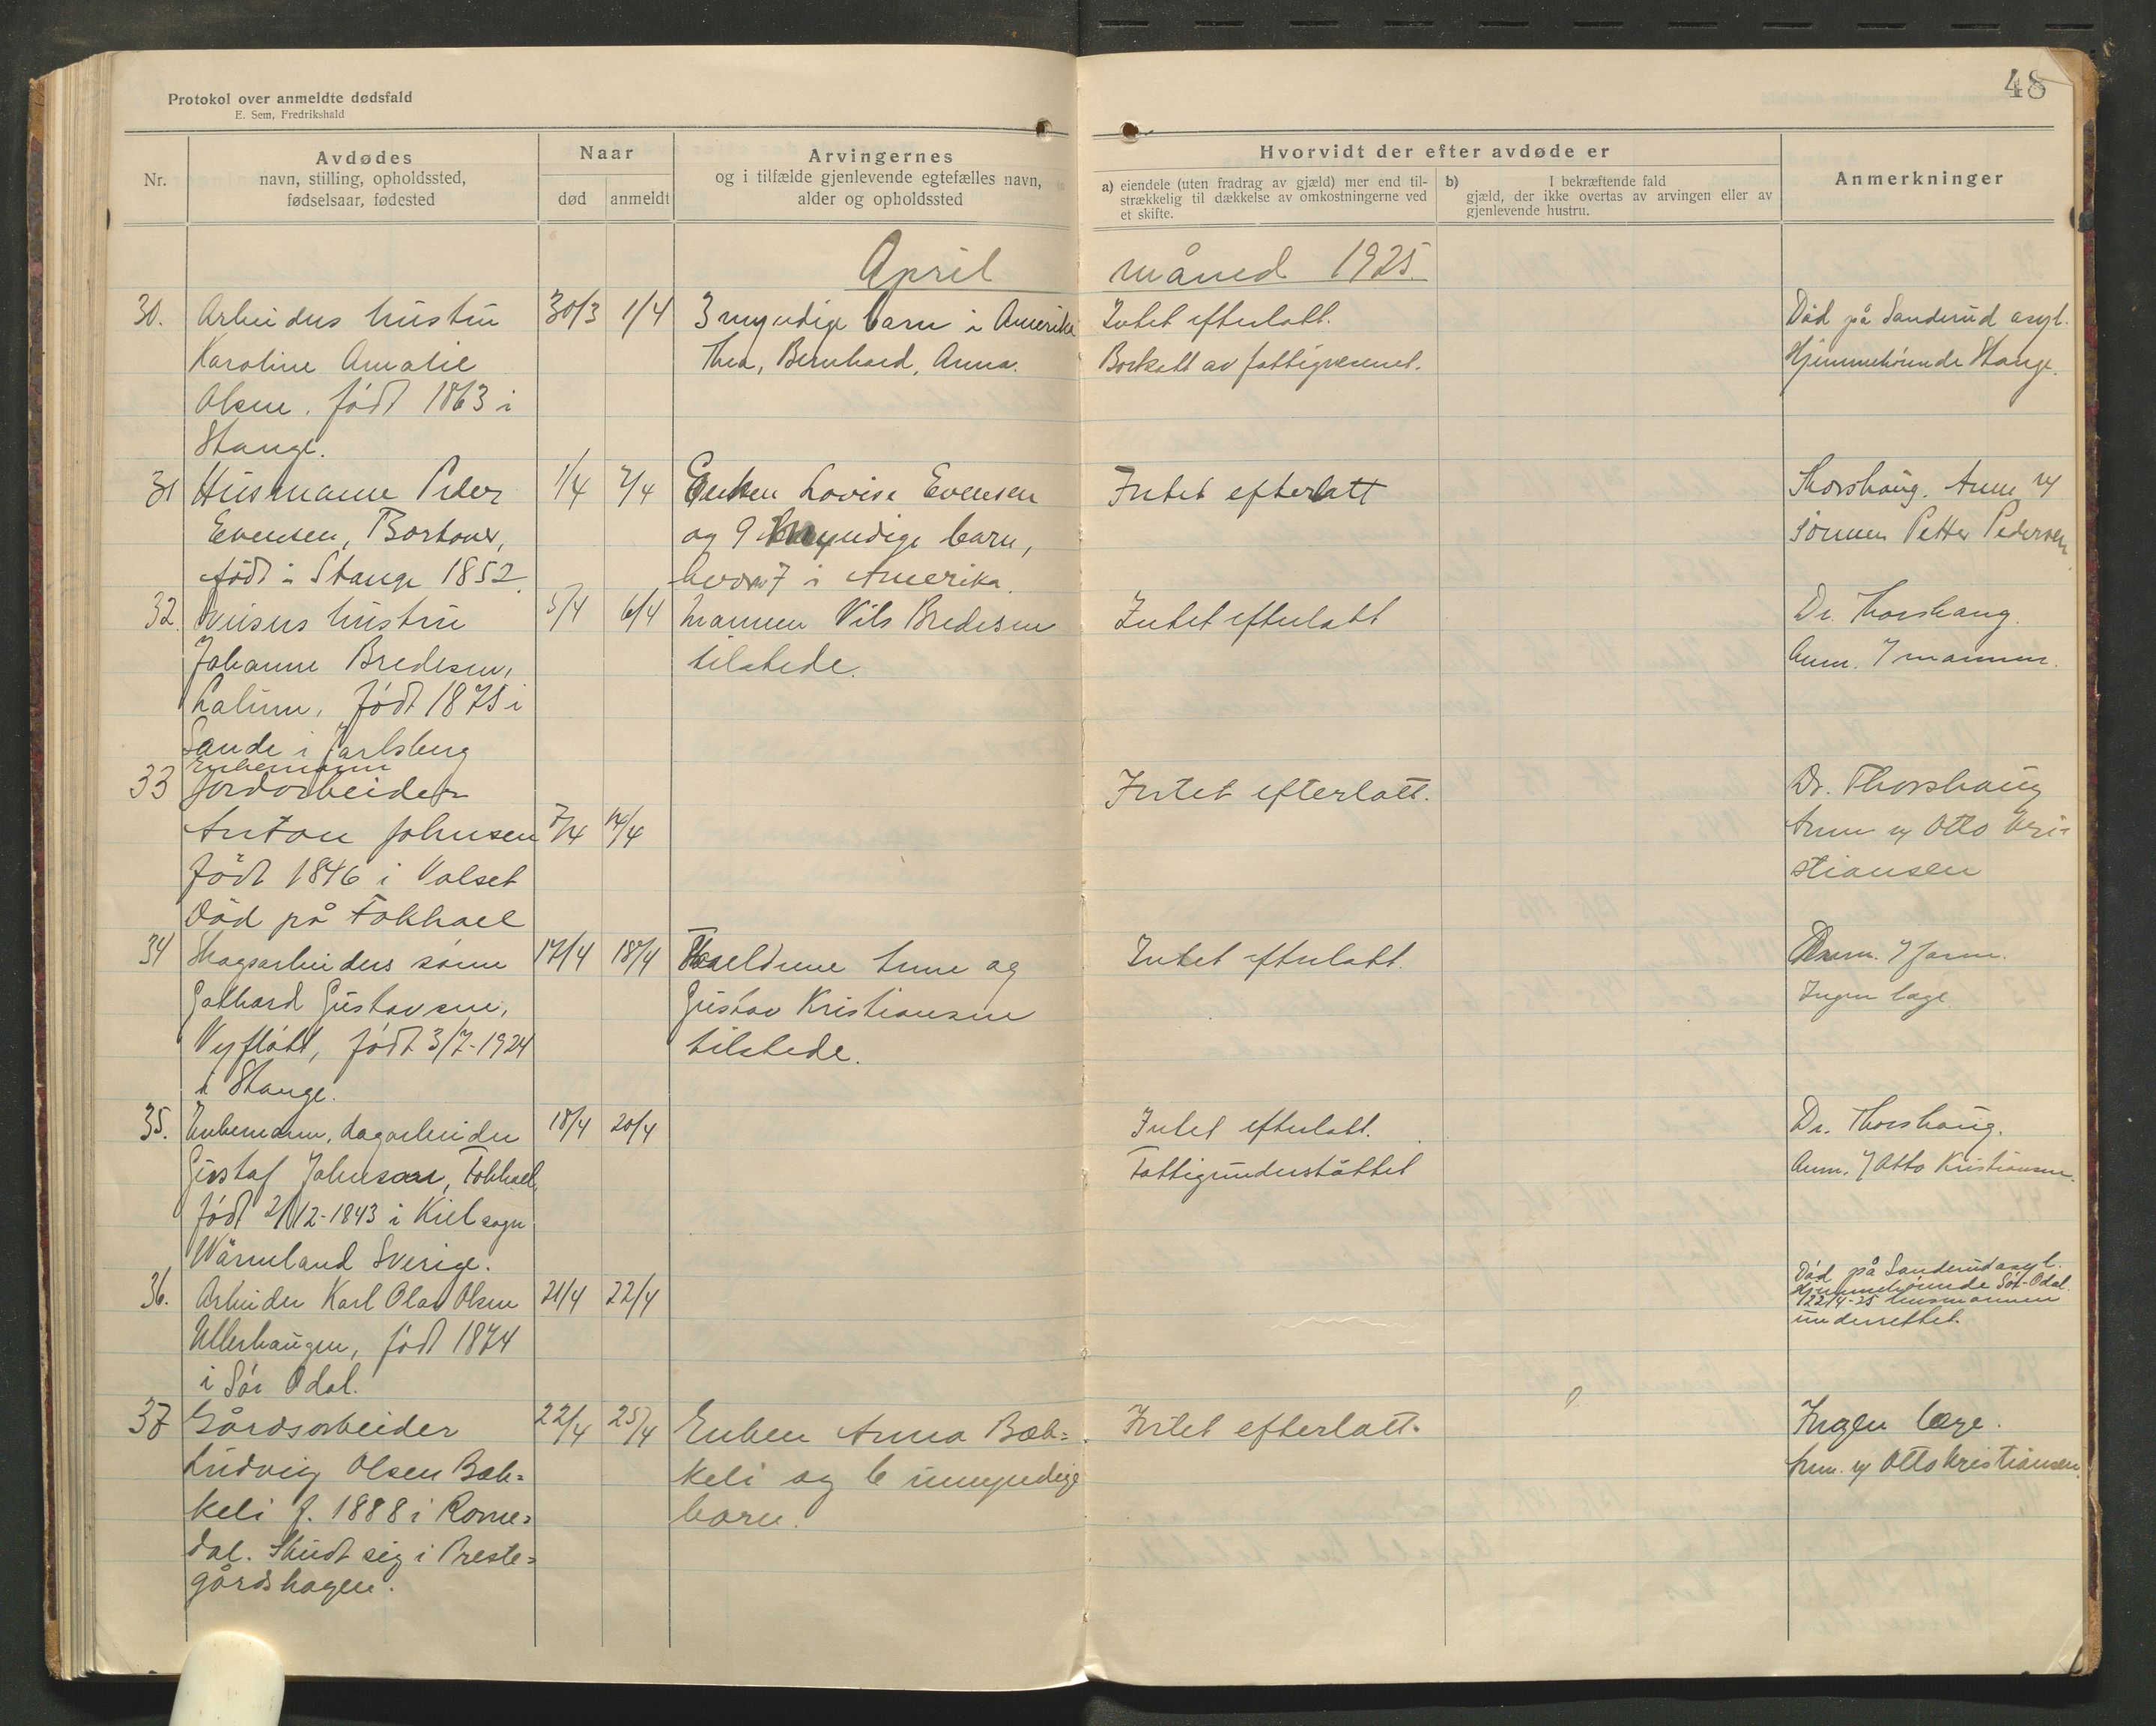 48
Protokol over anmeldte dødsfald
E. Sem, Fredrikshald
Nr.
Avdødes
navn, stilling, opholdssted,
fødselsaar, fødested
Naar
død
anmeldt
Arvingernes
og i tilfælde gjenlevende egtefælles navn,
alder og opholdssted
Hvorvidt der efter avdøde er
a) eiendele (uten fradrag av gjæld) mer end til-
strækkelig til dækkelse av omkostningerne ved
et skifte.
b) I bekræftende fald
gjæld, der ikke overtas av arvingen eller av
gjenlevende hustru.
Anmerkninger
April måned 1925.
30. Arbeiders hustru
Karoline Amalie
Olsen. født 1863 i
Stange.
30/3 1/4
3 myndige barn i Amerika
Thea, Bernhard, Anna.
Intet efterlatt.
Bortsatt av fattigvesenet.
Død på Sanderud asyl.
Hjemmehørende Stange.
31 Husmann Peder
Evensen, Bortover,
født i Stange 1852.
1/4 2/4
Enken Lovise Evensen
og 9 myndige barn,
hvorav 7 i Amerika.
Intet efterlatt
Thorshaug. Anm
sønnen Petter Pedersen
32.
hustru
Johanne Bredesen,
født 1875 i
Sande i Jarlsberg
5/4 6/4
mannen Nils Bredesen
tilstede.
Intet efterlatt
Dr. Thorshaug.
Anm. / mannen.
33 Enkemann
Jordarbeider
Anton Johnsen
født 1846 i Valset
Død på Fokhael
7/4 14/4
Intet efterlatt.
Dr. Thorshaug
Anm v/ Otto Kri-
stiansen
34 Skogsarbeiders sønn
Gothard Gustavsen,
født 3/7-1924
i Stange.
17/4 18/4
Foreldrene Tine og
Gustav Kristiansen
tilstede.
Intet efterlatt.
Anm. / faren.
Ingen læge
35. Enkemann, dagarbeider
Gustaf Johnsen, Fokhael,
født 21/12-1843 i Kiel sogn
Wärmland Sverige.
18/4 20/4
Intet efterlatt.
Fattigunderstøttet
Dr. Thorshaug.
Anm. / Otto Kristiansen.
36. Arbeider Karl Olav Olsen
Ullerhaugen, født 1874
i Sør Odal.
21/4 22/4
Død på Sanderud asyl.
Hjemmehørende Sør-Odal.
22/4-25 lensmannen
underrettet.
37 Gårdsarbeider
Ludvig Olsen Bæk=
keli f. 1888 i Rome=
dal. Skudt sig i Preste=
gårdshagen.
22/4 25/4
Enken Anna Bæk=
keli og 6 umyndige
barn.
Intet efterlatt.
Ingen læge.
Anm. v/ Otto Kristiansen